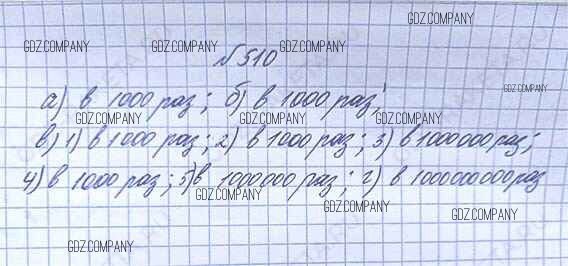 GDZ.COMPANY
GDZ.COMPANY GDZ.COMPANY GDZ.COMPANY
№510
GDZ.COMPANY
а) в 1000 раз; б) в 1000 раз;
GDZ.COMPANY GDZ.COMPANY GDZ.COMPANY
в) 1) в 1000 раз; 2) в 1000 раз; 3) в 1000000 раз;
4) в 1000 раз; 5) в 1000000 раз; г) в 1000000000 раз
GDZ.COMPANY GDZ.COMPANY
GDZ.COMPANY
GDZ.COMPANY